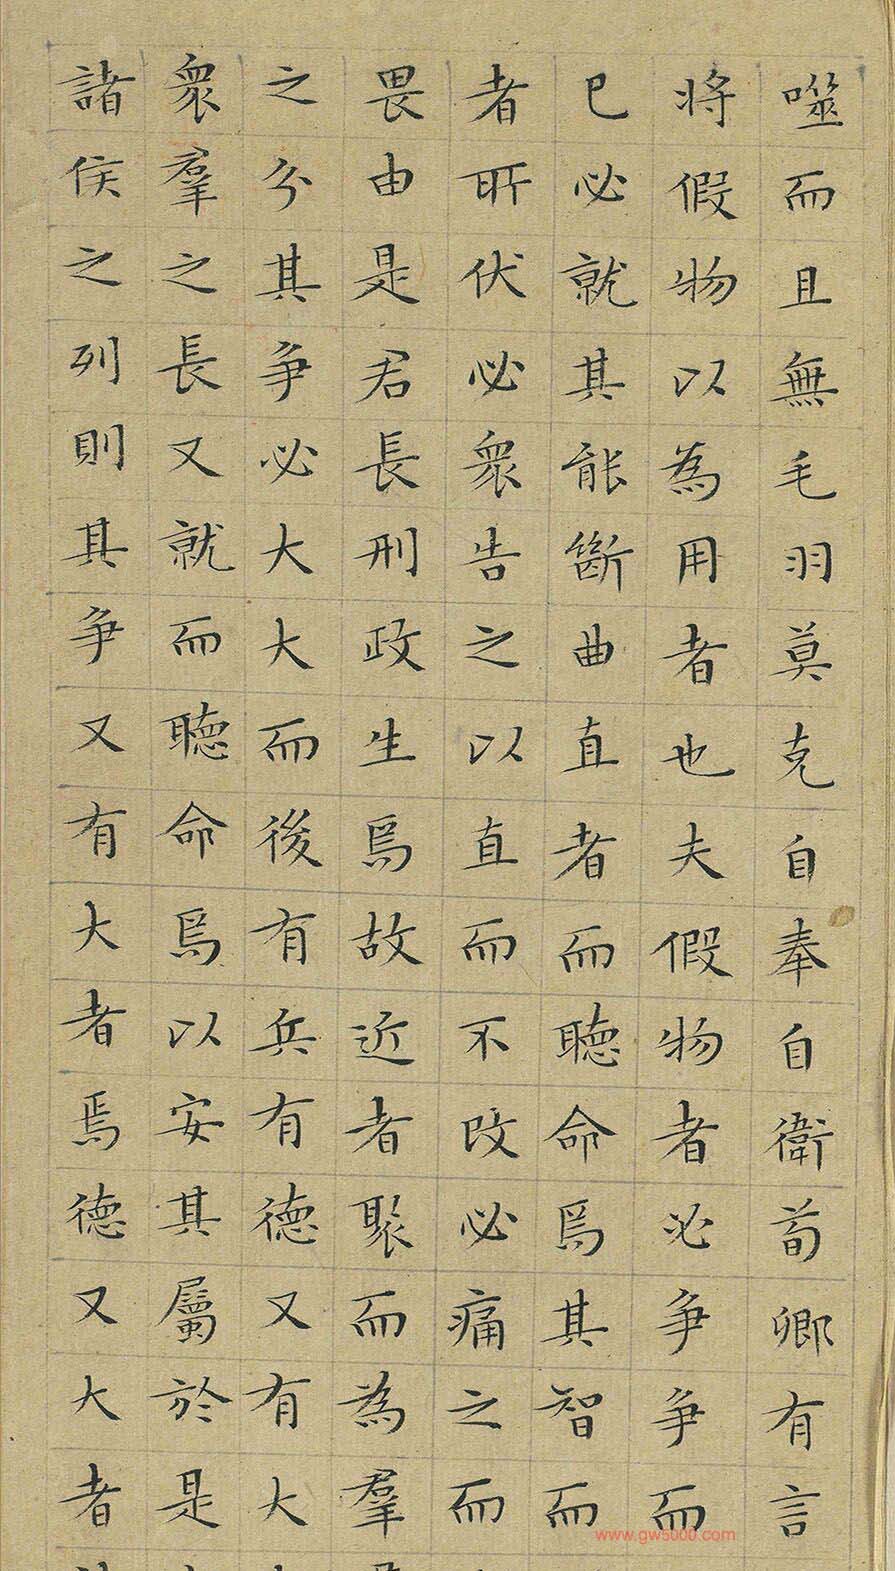 噬而且無毛羽莫克自奉自衛荀卿有言
將假物以為用者也夫假物者必争争而
已必就其能斷曲直者而聴命焉其智而
者所伏必衆告之以直而不改必痛之而
畏由是君長刑政生焉故近者聚而為羣
之分其争必大大而後有兵有德又有大
衆羣之長又就而聴命焉以安其屬於是
諸侯之列則其争又有大者焉德又大者
www.gw5000.com